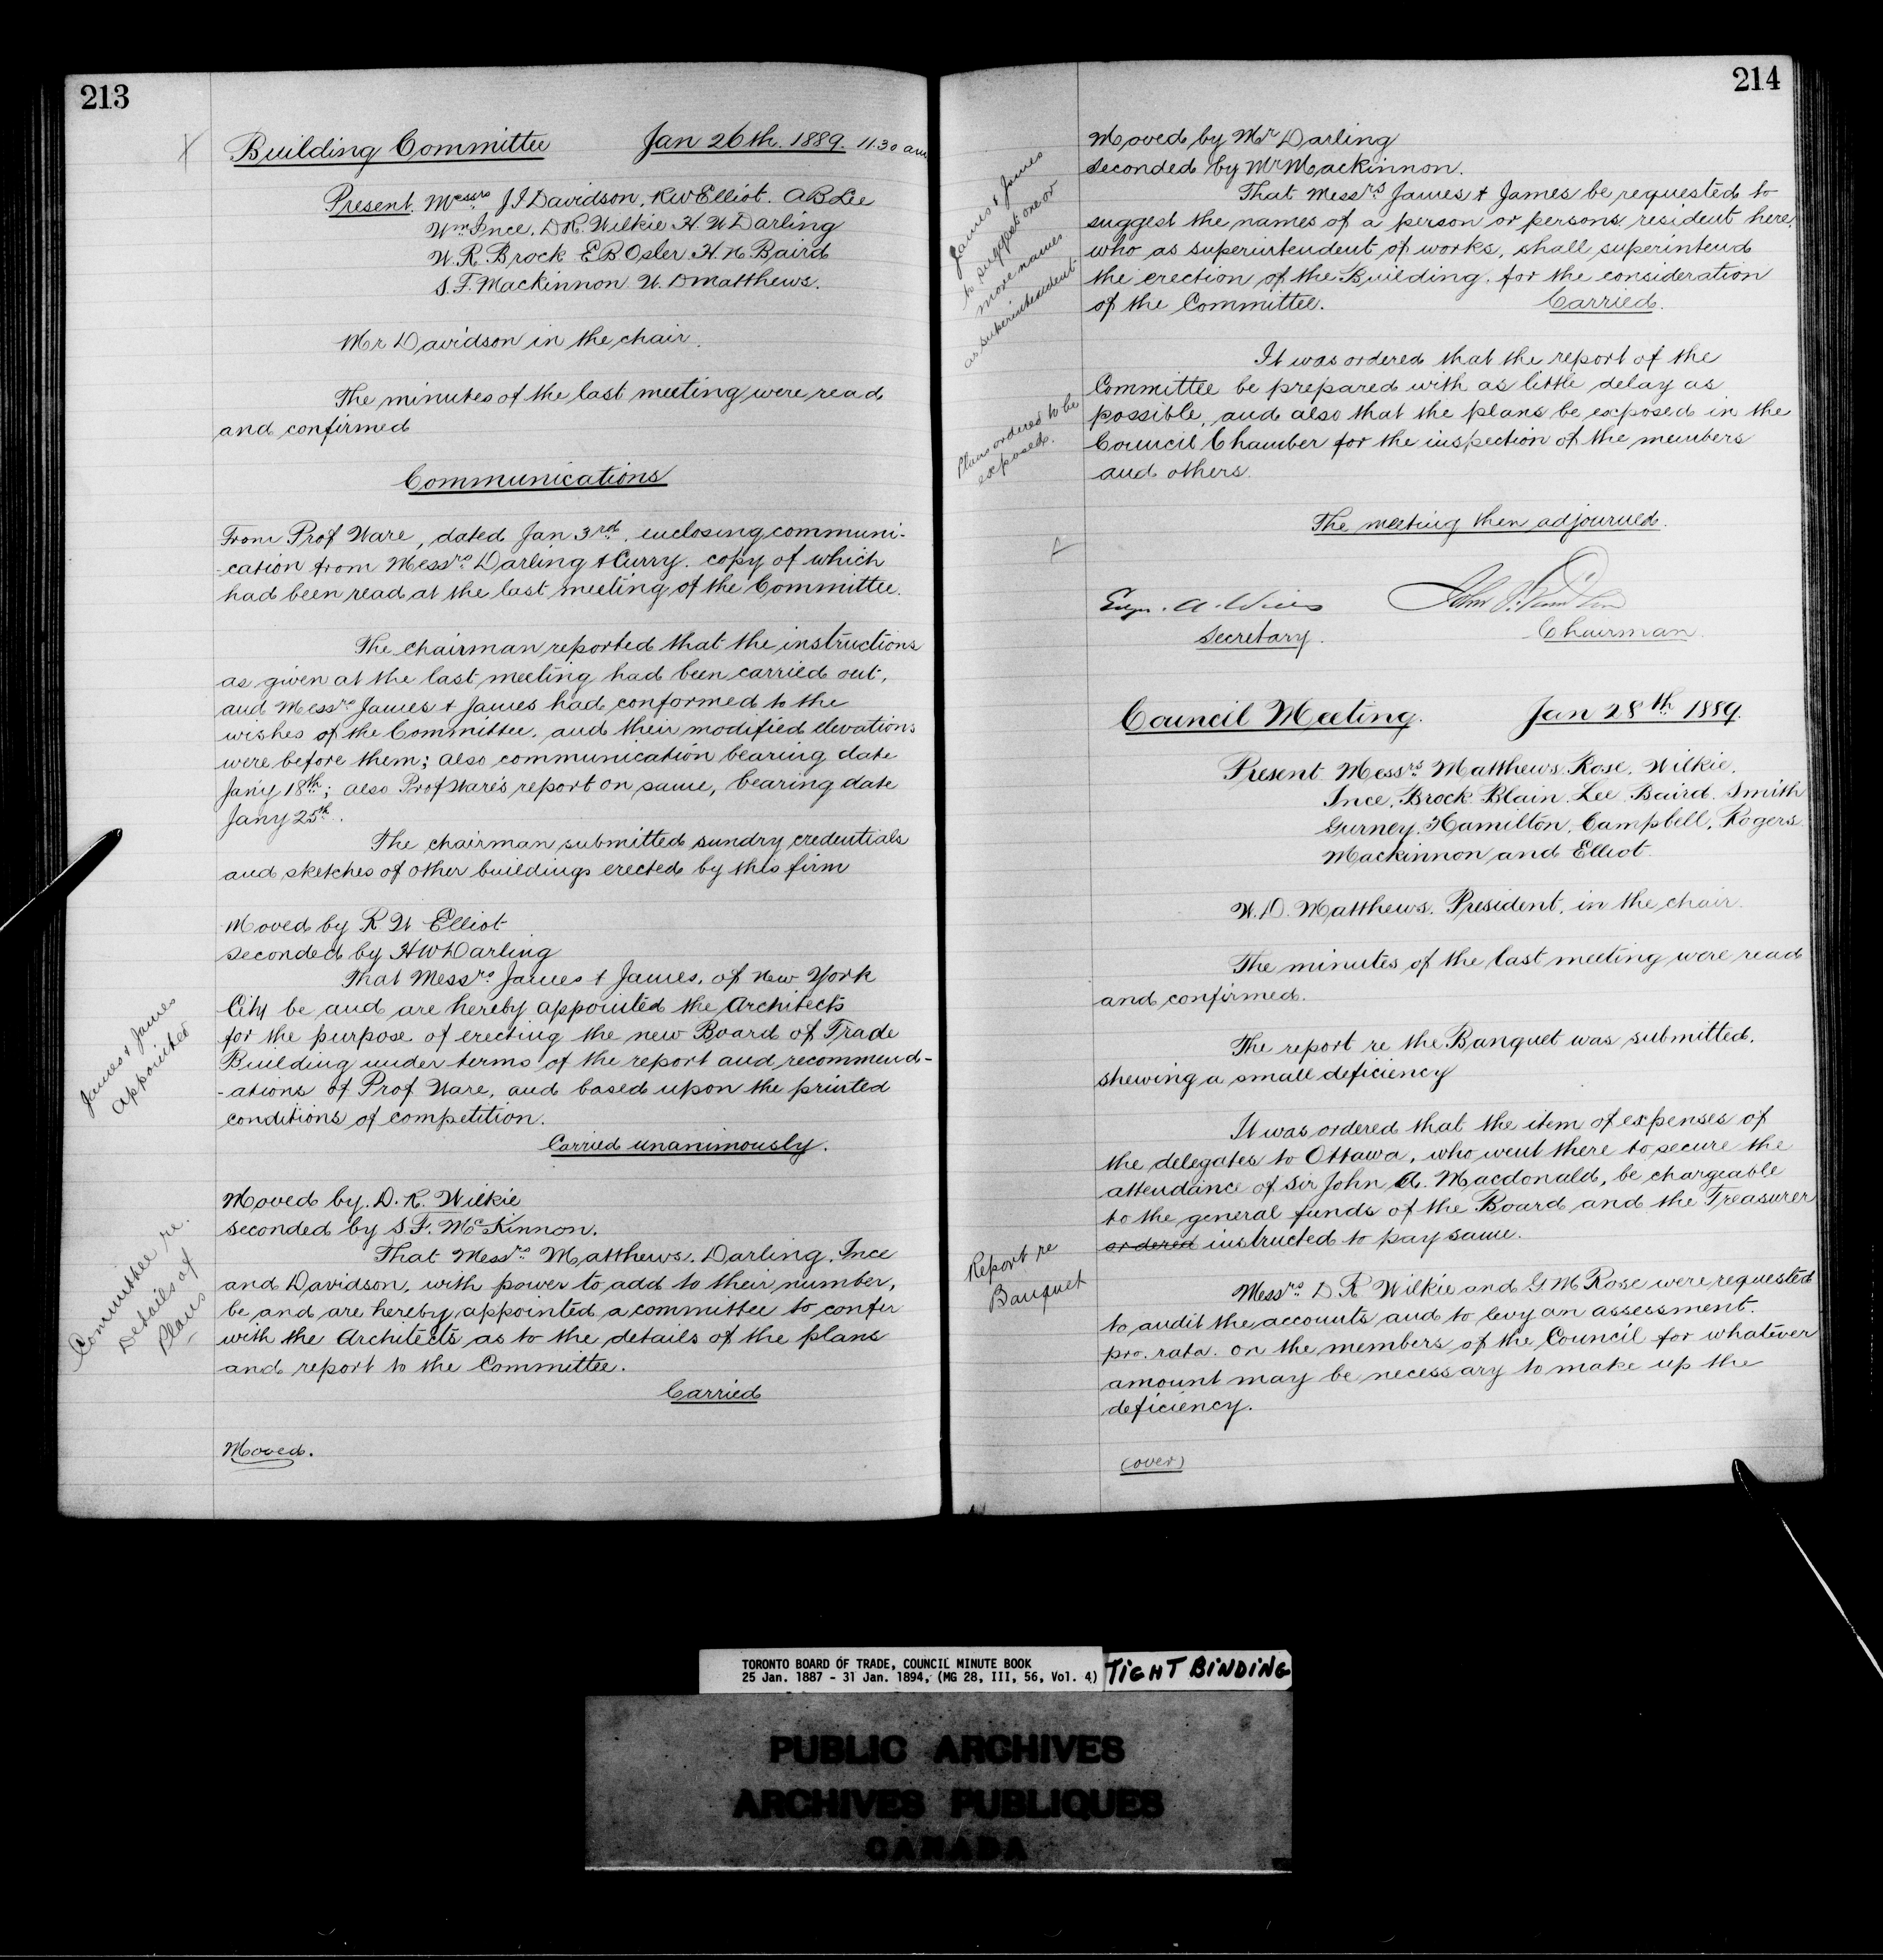 213
Building Committee Jan 26th. 1889. 11.30 am
Present. Messrs J I Davidson, R W Elliot. A B Lee
Wm Ince, D R. Wilkie H. W Darling
W. R. Brock E B Osler H. N Baird
S. F. Mackinnon W. D Matthews.
Mr Davidson in the chair.
The minutes of the last meeting were read
and confirmed
Communications
From Prof Ware, dated Jan 3rd. enclosing communi-
-cation from Messrs Darling & Curry. copy of which
had been read at the last meeting of the Committee.
The chairman reported that the instructions
as given at the last meeting had been carried out,
and Messrs James & James had conformed to the
wishes of the Committee, and their modified elevations
were before them; also communication bearing date
Jany 18th; also Prof Ware's report on same, bearing date
Jany 25th.
The chairman submitted sundry credentials
and sketches of other buildings erected by this firm
Moved by R W Elliot
seconded by H W Darling
James & James
appointed
That Messrs. James & James, of New York
City be and are hereby appointed the Architects
for the purpose of erecting the new Board of Trade
Building under terms of the report and recommend-
-ations of Prof Ware, and based upon the printed
conditions of competition.
Carried unanimously.
Moved by. D. R. Wilkie
seconded by S F. McKinnon.
Committee re.
Details of
Plans
That Messrs Matthews. Darling. Ince
and Davidson, with power to add to their number,
be and are hereby appointed a committee to confer
with the Architects as to the details of the plans
and report to the Committee.
Carried
Moved.
214
Moved by Mr Darling
seconded by Mr Mackinnon.
James & James
to suggest one or
more names
as superintendent
That Messrs James & James be requested to
suggest the names of a person or persons resident here,
who as superintendent of works, shall superintend
the erection of the Building. for the consideration
of the Committee. Carried.
Plans ordered to be
exposed.
It was ordered that the report of the
Committee be prepared with as little delay as
possible, and also that the plans be exposed in the
Council Chamber for the inspection of the members
and others.
The meeting then adjourned.
Edgr. A. Wills
Secretary. Chairman.
Council Meeting. Jan 28th. 1889.
Present Messrs Matthews Rose. Wilkie.
Ince, Brock Blain Lee Baird. Smith
Gurney. Hamilton, Campbell, Rogers
Mackinnon and Elliot.
W. D. Matthews. President, in the chair.
The minutes of the last meeting were read
and confirmed.
The report re the Banquet was submitted,
shewing a small deficiency
It was ordered that the item of expenses of
the delegates to Ottawa, who went there to secure the
attendance of Sir John A. Macdonald, be chargeable
to the general funds of the Board and the Treasurer
ordered instructed to pay same.
Report re
Banquet
Messrs D R Wilkie and G M Rose were requested
to audit the accounts and to levy an assessment.
pro. rata. on the members of the Council for whatever
amount may be necessary to make up the
deficiency.
(over)
TORONTO BOARD OF TRADE, COUNCIL MINUTE BOOK
25 Jan. 1887 - 31 Jan. 1894, (MG 28, III, 56, Vol. 4)
TIGHT BINDING
PUBLIC ARCHIVES
ARCHIVES PUBLIQUES
CANADA